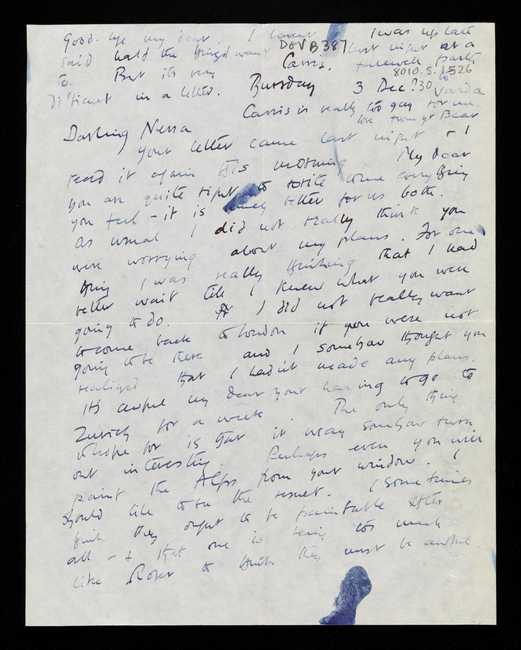 Good-bye my dear. I haven't
said half the things I want
to. But its very
difficult in a letter.
I was up late
last night at a
farewell party
to Varda
DOVB387
8010.5.1526
Cassis.
Thursday 3 Dec ?30
Cassis is really too gay for me.
love from yr Bear
Darling Nessa
Your letter came last night & I
read it again this morning. My dear
you are quite right to write me everything
you feel - it is much better for us both.
As usual I did not really think you
were worrying about my plans. For one
thing I was really thinking that I had
better wait till I knew what you were
going to do. I did not really want
to come back to London if you were not
going to be there and I somehow thought you
realised that I hadn't made any plans.
It's awful my dear your having to go to
Zurich for a week. The only thing
to hope for is that it may somehow turn
out interesting. Perhaps even you will
paint the Alps from your window. I
should like to see the result. I sometimes
think they ought to be paintable after
all - & that one is being too much
like Roger to think they must be awful